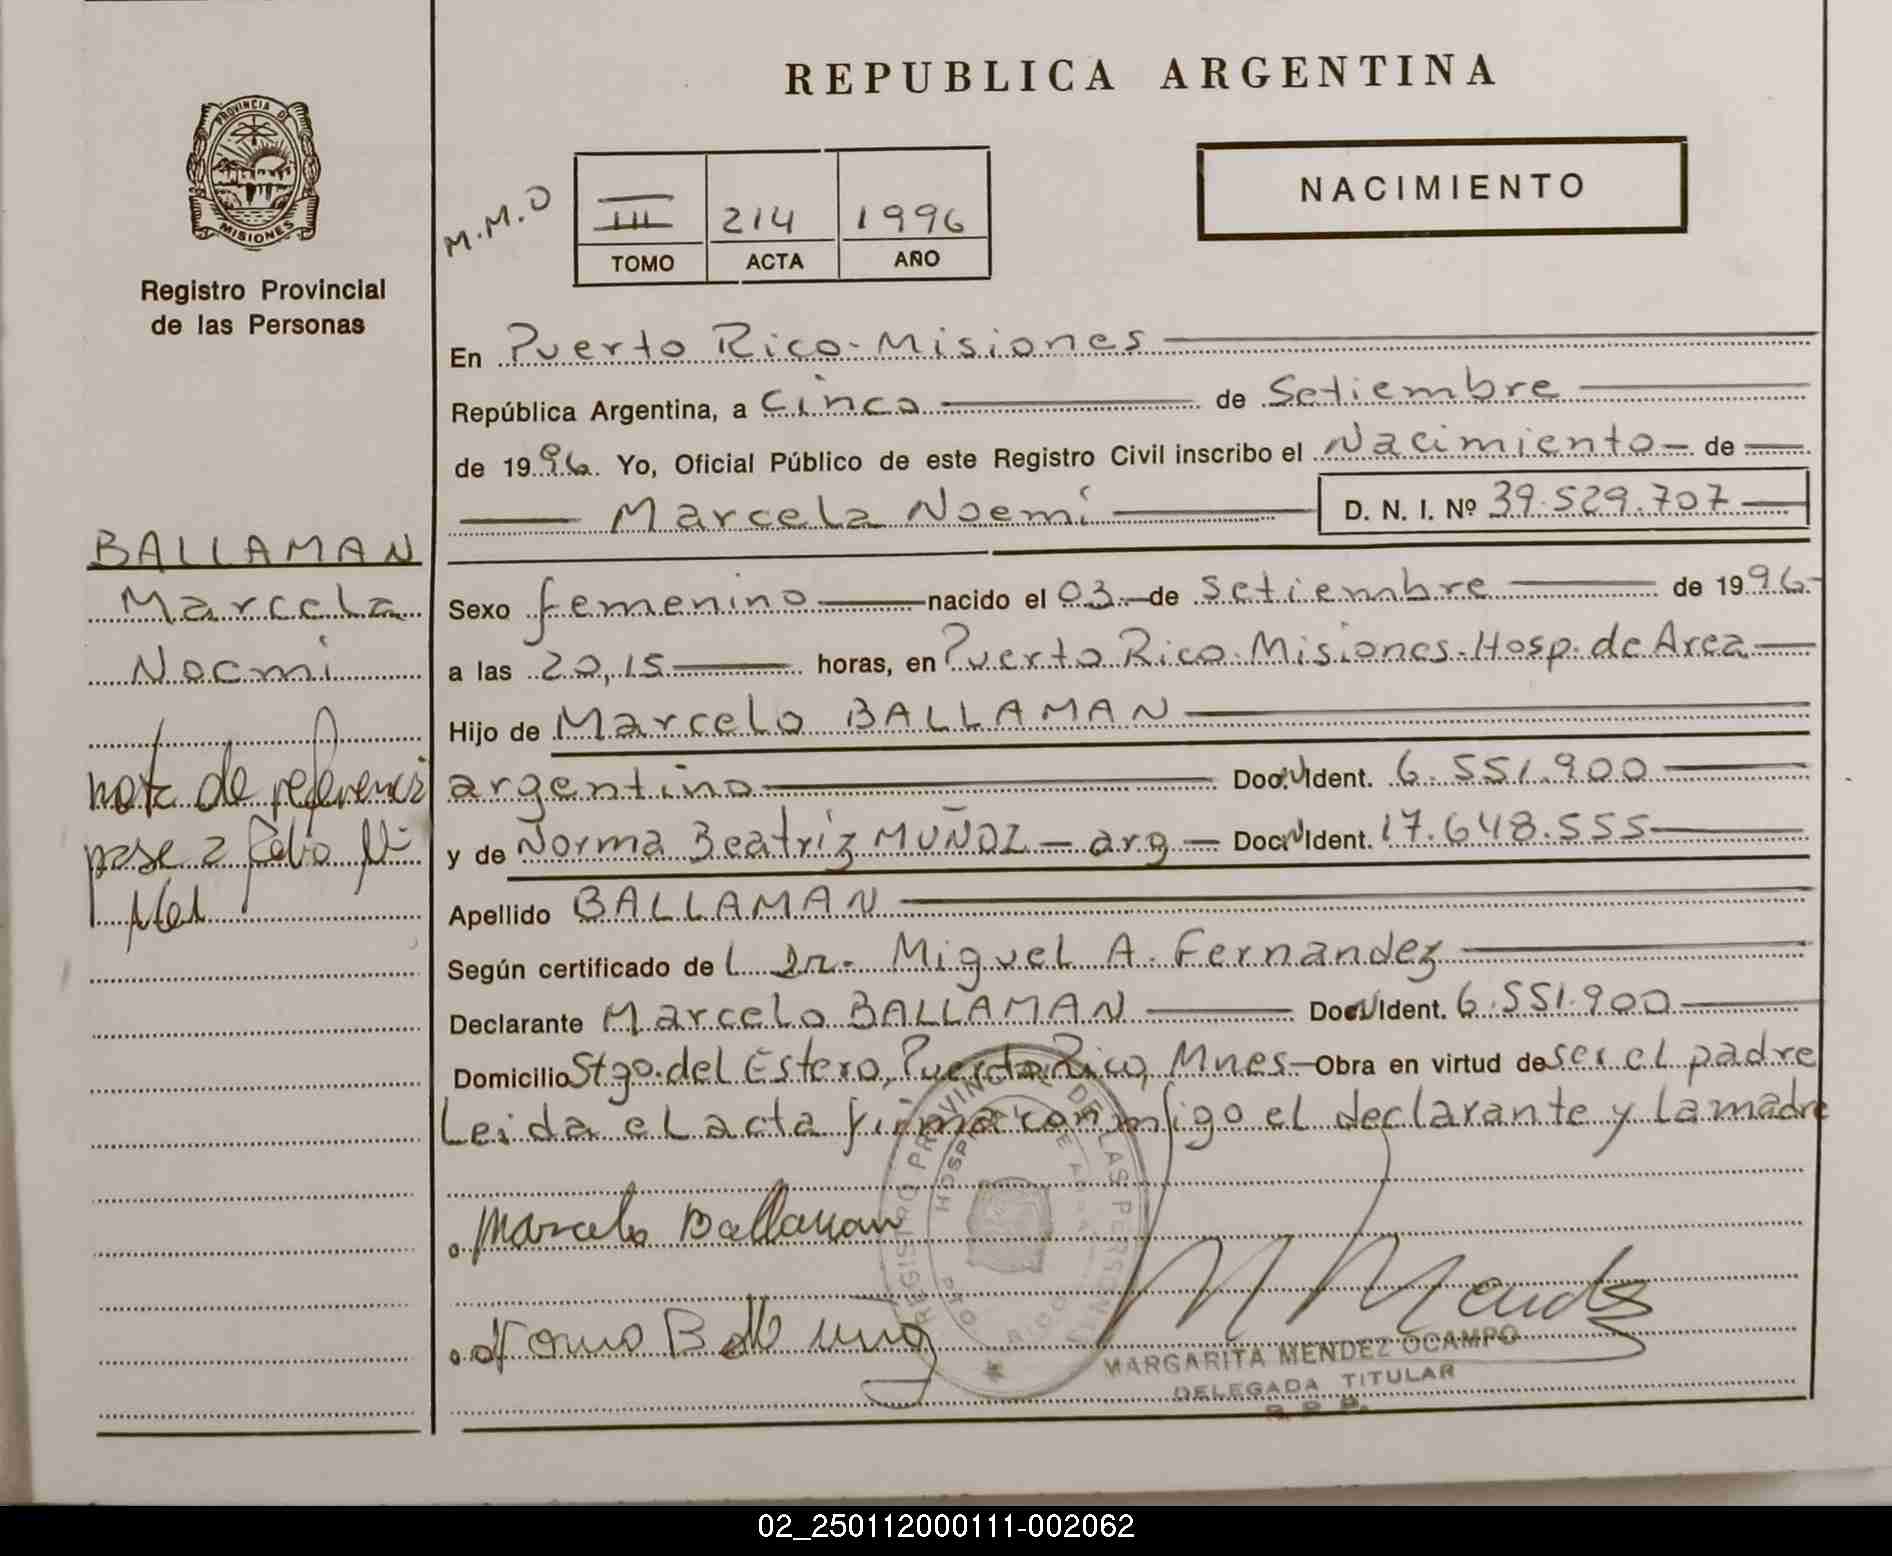 REPUBLICA ARGENTINA
PROVINCIA DE
MISIONES
Registro Provincial
de las Personas
M.M.O
III 214 1996
TOMO ACTA AÑO
NACIMIENTO
En Puerto Rico-Misiones
República Argentina, a cinco de Setiembre
de 1996. Yo, Oficial Público de este Registro Civil inscribo el Nacimiento de
Marcela Noemí D. N. I. Nº 39.529.707
BALLAMAN
Marcela
Noemí
nota de referencia
pase a folio Nº
Sexo femenino nacido el 03 de Setiembre de 1996
a las 20,15 horas, en Puerto Rico-Misiones-Hosp. de Area
Hijo de Marcelo BALLAMAN
argentino Doc. Ident. 6.551.900
y de Norma Beatriz MUÑOZ - arg - Doc. Ident. 17.648.555
Apellido BALLAMAN
Según certificado del Dr. Miguel A. Fernandez
Declarante Marcelo BALLAMAN Doc. Ident. 6.551.900
Domicilio Stgo. del Estero, Puerto Rico, Mnes- Obra en virtud de ser el padre
Leida el acta firma conmigo el declarante y la madre
Marcelo Ballaman
REGISTRO PROVINCIAL DE LAS PERSONAS
M Mendez
MARGARITA MENDEZ OCAMPO
DELEGADA TITULAR
R. P. P.
02_250112000111-002062